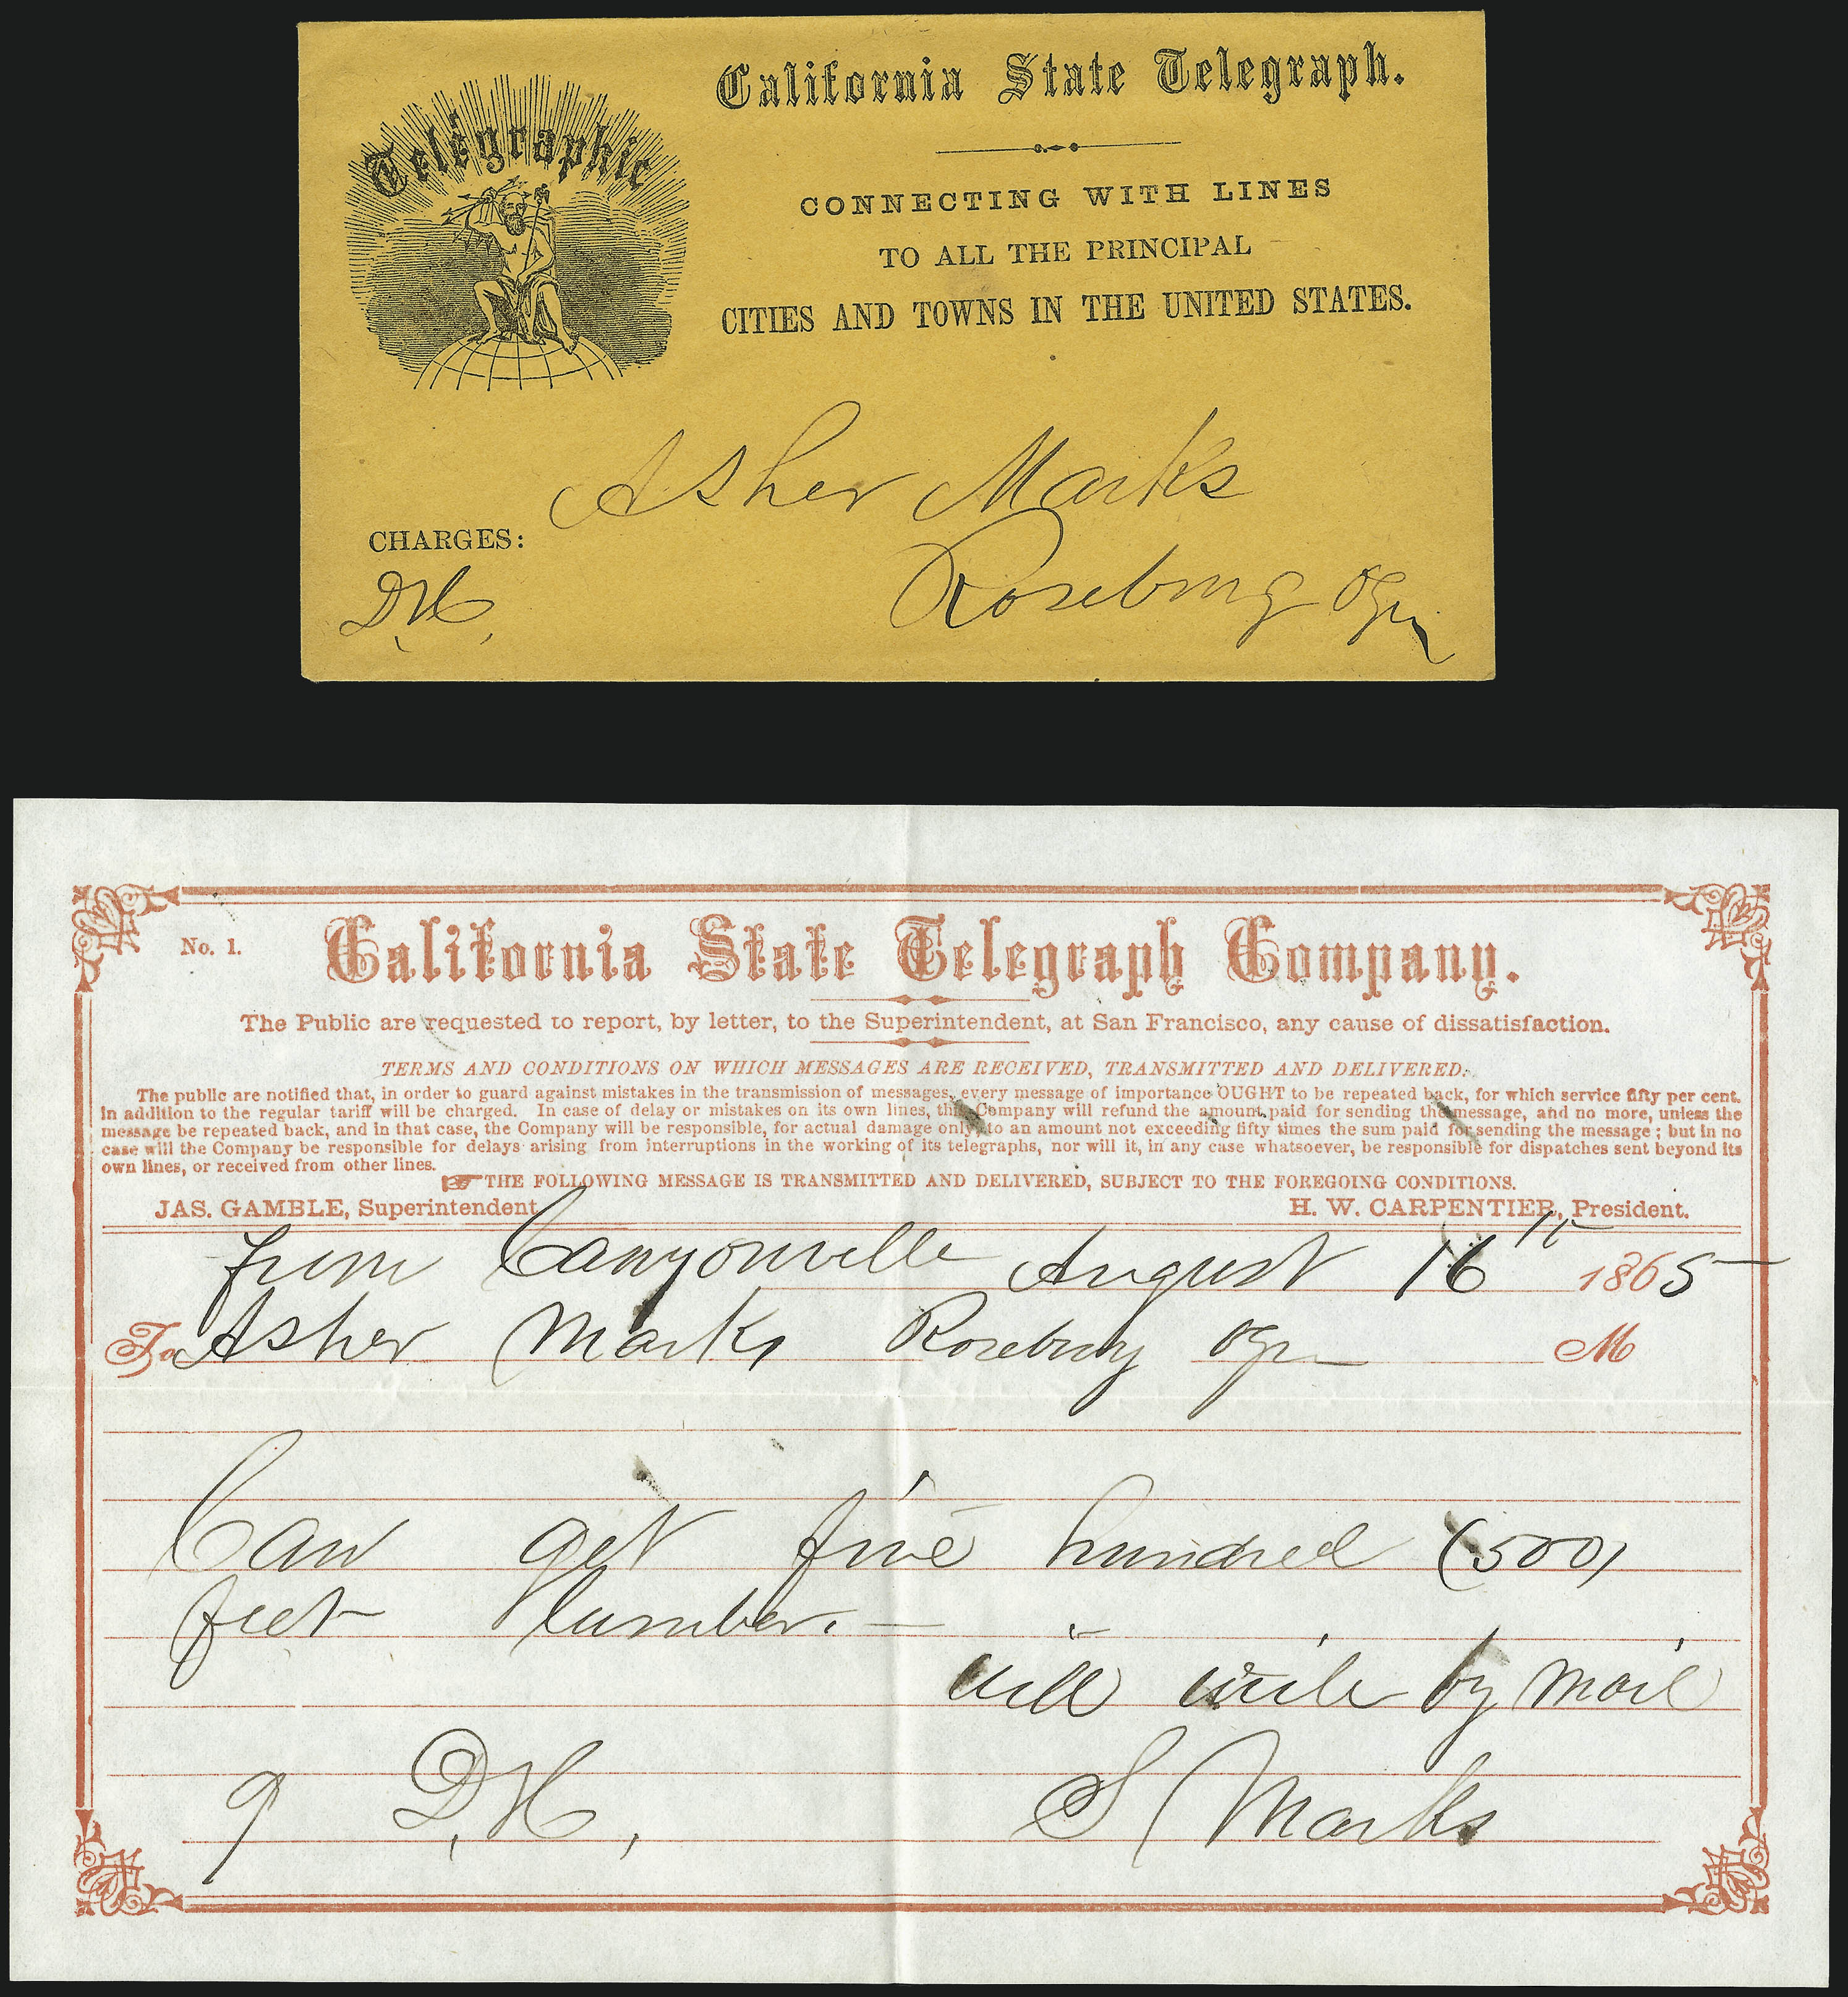 California State Telegraph.
Telegraphic
CONNECTING WITH LINES
TO ALL THE PRINCIPAL
CITIES AND TOWNS IN THE UNITED STATES.
Asher Marks
CHARGES:
Roseburg Ogn
D.H,
No. 1.
California State Telegraph Company.
The Public are requested to report, by letter, to the Superintendent, at San Francisco, any cause of dissatisfaction.
TERMS AND CONDITIONS ON WHICH MESSAGES ARE RECEIVED, TRANSMITTED AND DELIVERED.
The public are notified that, in order to guard against mistakes in the transmission of messages, every message of importance OUGHT to be repeated back, for which service fifty per cent.
in addition to the regular tariff will be charged. In case of delay or mistakes on its own lines, this Company will refund the amount paid for sending the message, and no more, unless the
message be repeated back, and in that case, the Company will be responsible, for actual damage only, to an amount not exceeding fifty times the sum paid for sending the message; but in no
case will the Company be responsible for delays arising from interruptions in the working of its telegraphs, nor will it, in any case whatsoever, be responsible for dispatches sent beyond its
own lines, or received from other lines.
THE FOLLOWING MESSAGE IS TRANSMITTED AND DELIVERED, SUBJECT TO THE FOREGOING CONDITIONS.
JAS. GAMBLE, Superintendent H. W. CARPENTIER, President.
from Canyonville August 16th 1865
To Asher Marks Roseburg Ogn M
Can get five hundred (500)
feet lumber. —
will write by mail
9 D.H, S Marks